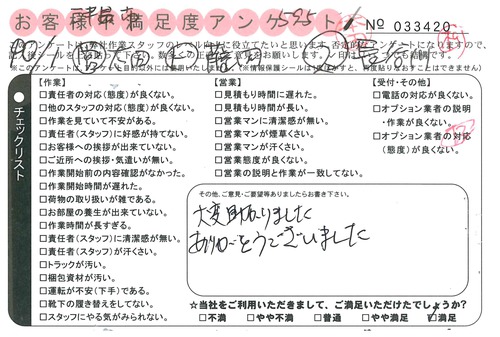 お客様不満足度アンケート
No 033420
【作業】
□責任者の対応(態度)が良くない。
□他のスタッフの対応(態度)が良くない。
□作業を見ていて不安がある。
□責任者(スタッフ)に好感が持てない。
□お客様への挨拶が出来ていない。
□ご近所への挨拶・気遣いが無い。
□作業開始前の内容確認がなかった。
□作業開始時間が遅れた。
□荷物の取り扱いが雑である。
□お部屋の養生が出来ていない。
□作業時間が長すぎる。
□責任者(スタッフ)に清潔感が無い。
□責任者(スタッフ)が汗くさい。
□トラックが汚い。
□梱包資材が汚い。
□運転が不安(下手)である。
□靴下の履き替えをしてない。
□スタッフにやる気がみられない。
【営業】
□見積もり時間に遅れた。
□見積もり時間が長い。
□営業マンに清潔感が無い。
□営業マンが煙草くさい。
□営業マンが汗くさい。
□営業態度が良くない。
□営業の説明と作業が一致してない。
【受付・その他】
□電話の対応が良くない。
□オプション業者の説明
・作業が良くない。
□オプション業者の対応
(態度)が良くない。
チェックリスト
その他、ご意見・ご要望等ありましたらお書き下さい。
大変助かりました
ありがとうございました
☆当社をご利用いただきまして、ご満足いただけたでしょうか?
□不満 □やや不満 □普通 □やや満足 □満足